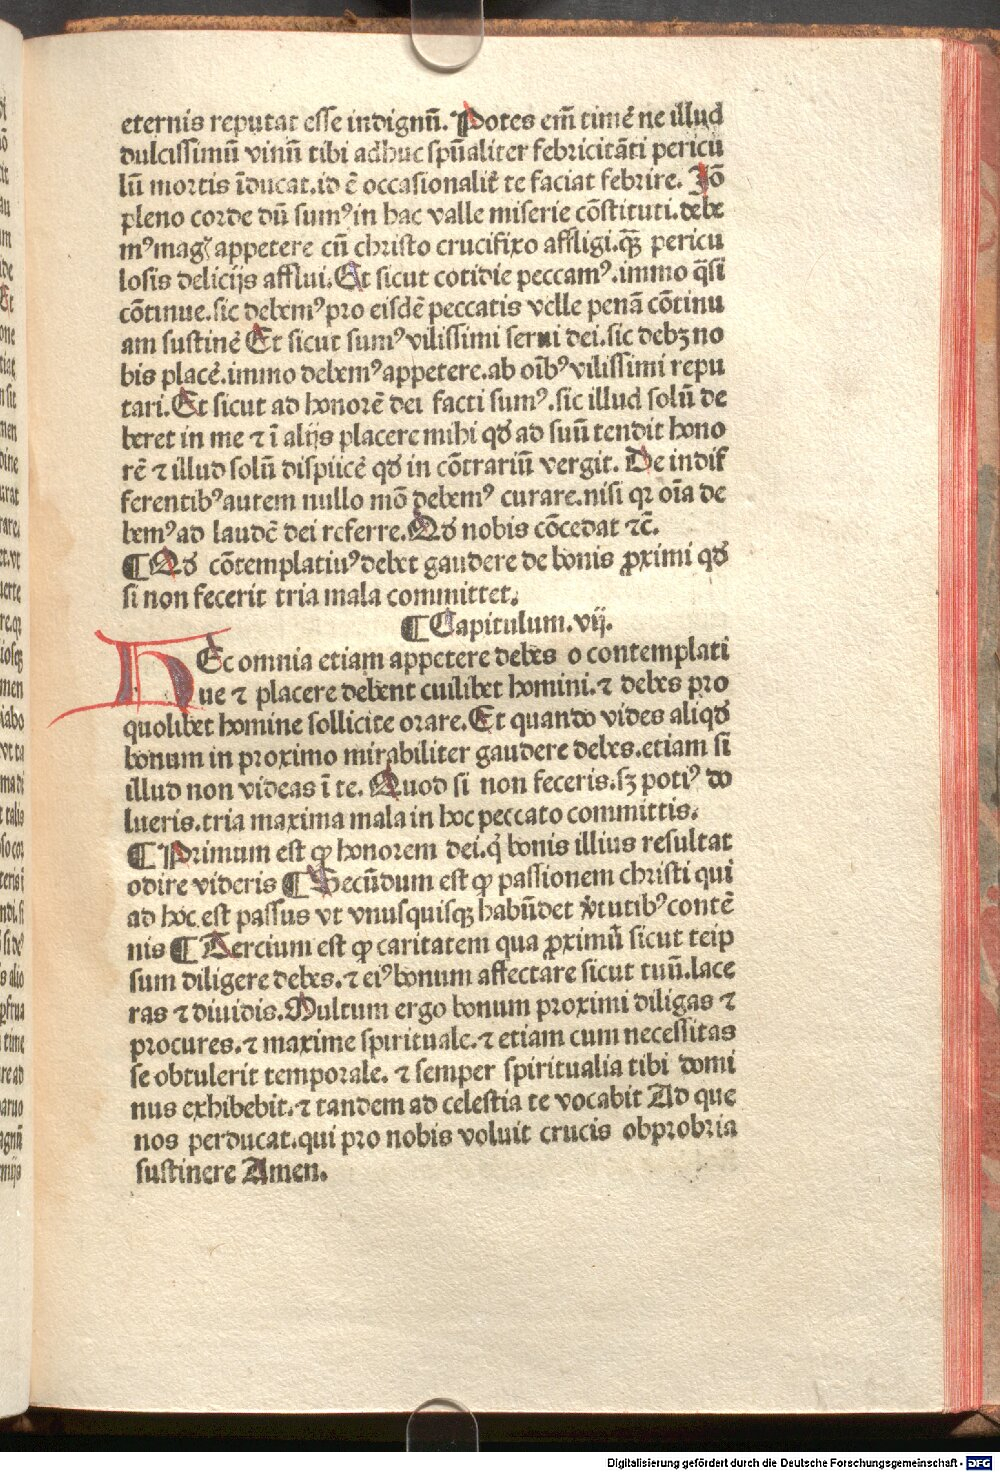 eternis reputat esse indignū. Potes em̄ timē ne illud
dulcissimū vinū tibi adhuc spūaliter febricitāti pericu
lū mortis īducat. id ē occasionalit̄ te faciat febrire. Jō
pleno corde dū sumꝰ in hac valle miserie cōstituti. debe
mꝰ magꝭ appetere cū christo crucifixo affligi. qꝫ̄ pericu
losis delicijs afflui. Et sicut cotidie peccamꝰ. immo q̄si
cōtinue. sic debemꝰ pro eisdē peccatis velle penā cōtinu
am sustinē Et sicut sumꝰ vilissimi serui dei. sic debꝫ no
bis placē. immo debemꝰ appetere. ab oībꝰ vilissimi repu
tari. Et sicut ad honorē dei facti sumꝰ. sic illud solū de
beret in me ⁊ ī alijs placere mihi qđ ad suū tendit hono
rē ⁊ illud solū displicē qđ in cōtrariū vergit. De indif
ferentibꝰ autem nullo mō debemꝰ curare. nisi qꝛ oīa de
bemꝰ ad laudē dei referre. Qđ nobis cōcedat ⁊c̄.
¶ Qđ cōtemplatiuꝰ debet gaudere de bonis ꝓximi qđ
si non fecerit tria mala committet.
¶ Capitulum. vij.
HEc omnia etiam appetere debes o contemplati
ue ⁊ placere debent cuilibet homini. ⁊ debes pro
quolibet homine sollicite orare. Et quando vides aliqđ
bonum in proximo mirabiliter gaudere debes. etiam si
illud non videas ī te. Quod si non feceris. sꝫ potiꝰ do
lueris. tria maxima mala in hoc peccato committis.
¶ Primum est ꝙ honorem dei. q̇ bonis illius resultat
odire videris ¶ Secūdum est ꝙ passionem christi qui
ad hoc est passus vt vnusquisqꝫ habūdet v̓tutibꝰ contē
nis ¶ Tercium est ꝙ caritatem qua ꝓximū sicut teip
sum diligere debes. ⁊ eiꝰ bonum affectare sicut tuū. lace
ras ⁊ diuidis. Multum ergo bonum proximi diligas ⁊
procures. ⁊ maxime spirituale. ⁊ etiam cum necessitas
se obtulerit temporale. ⁊ semper spiritualia tibi domi
nus exhibebit. ⁊ tandem ad celestia te vocabit Ad que
nos perducat. qui pro nobis voluit crucis obprobria
sustinere Amen.
Digitalisierung gefördert durch die Deutsche Forschungsgemeinschaft - DFG